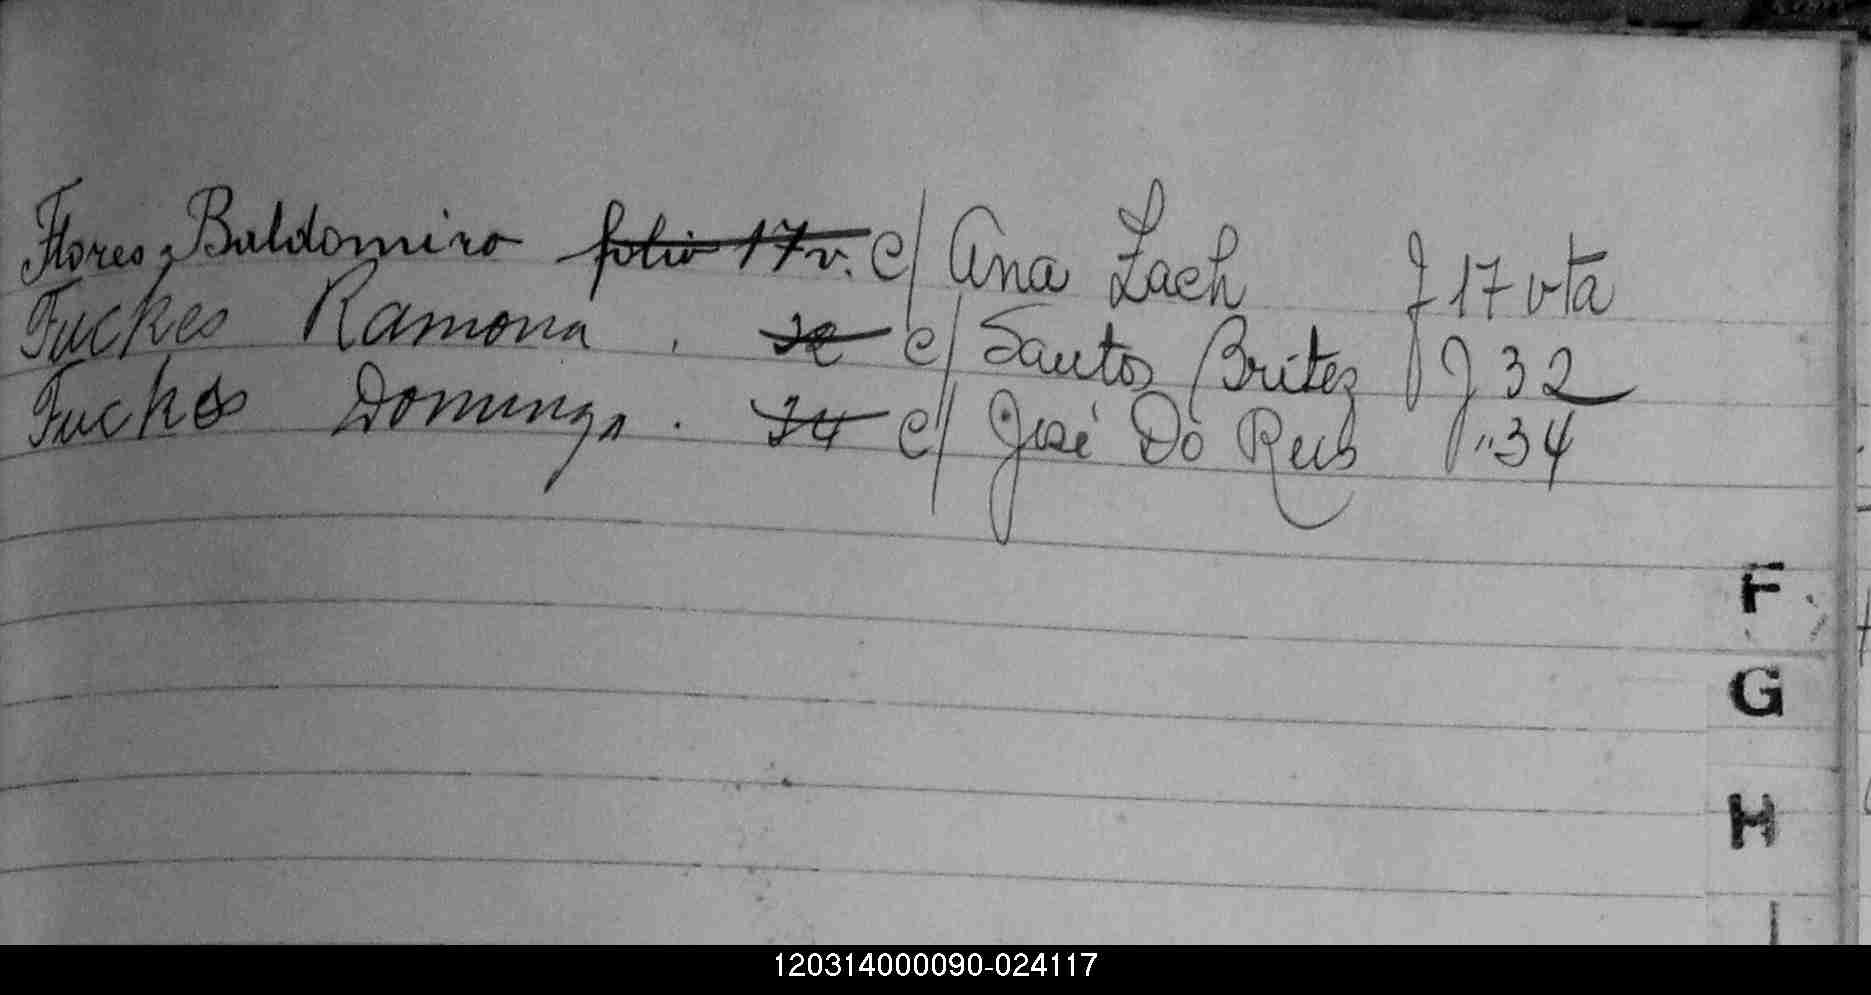 Flores, Baldomiro folio 17v. c/ Ana Zach f 17 vta
Fuckes Ramona . 32 c/ Santos Britez f 32
Fuckes Dominga . 34 c/ José Do Reis " 34
F
G
H
I
120314000090-024117